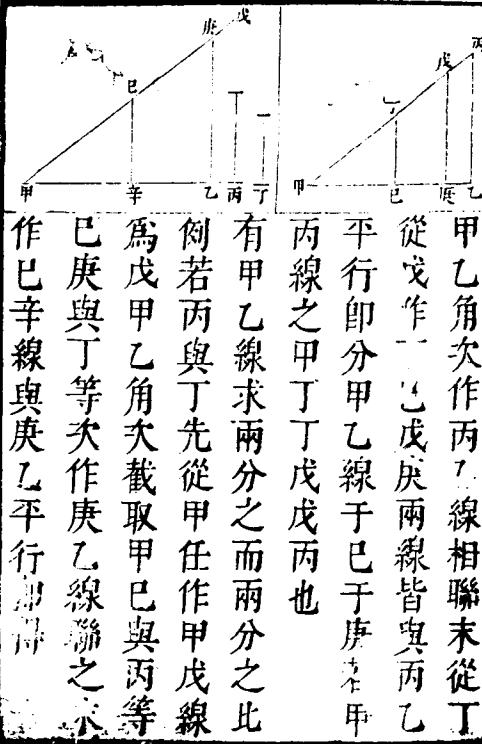 丙
戊
甲
巳
庚
乙
戊
庚
巳
甲
辛
乙
丙
丁
甲乙角次作丙乙線相聯末從丁
從戊作巳戊庚兩線皆與丙乙
平行卽分甲乙線于巳于庚若甲
丙線之甲丁丁戊戊丙也
有甲乙線求兩分之而兩分之比
例若丙與丁先從甲任作甲戊線
爲戊甲乙角次截取甲巳與丙等
巳庚與丁等次作庚乙線聯之末
作巳辛線與庚乙平行卽得